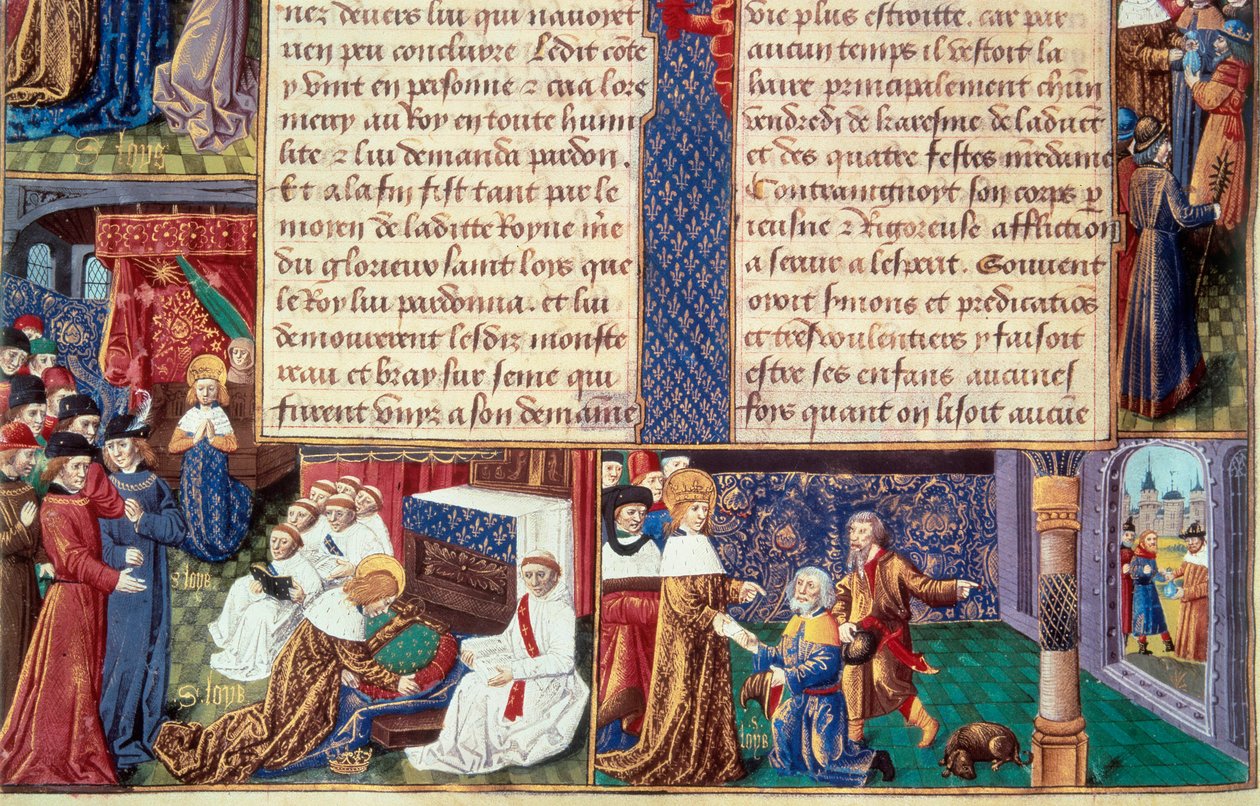 nez devers lui qui navoyẽt
rien peu conclurre Ledit cõte
y vint en personne & cria lors
mercy au Roy en toute humi
lite & lui demanda pardon.
Et a la fin fist tant par le
moyen de laditte Royne me͂
du glorieux saint loys que
le Roy lui pardonna. et lui
demourerent lesdiz monste
reau et bray sur seine qui
furent vnyz a son demaĩne
vie plus estroitte. car par
aucun temps il vestoit la
haire principalement chũn
vendredi de karesme de laduẽt
et des quatre festes
Contraingnoyt son corps p
ieusne & Rigoreuse affliction
a seruir a lesperit. Souuent
ouoit s̃mons et predicatiõs
et tres voulentiers y faisoit
estre ses enfans aucunes
foys quant on lisoit aucũe
S loys
S loys
S loys
S.
loys